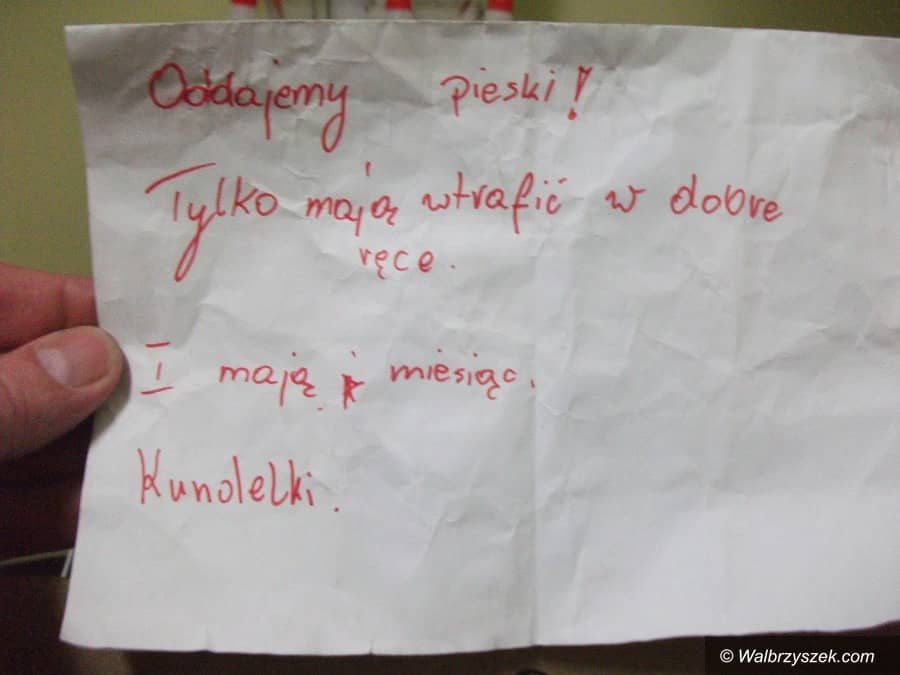 Oddajemy pieski!
Tylko mają wtrafić w dobre
ręce.
I mają miesiąc.
Kundelki.
© Walbrzyszek.com